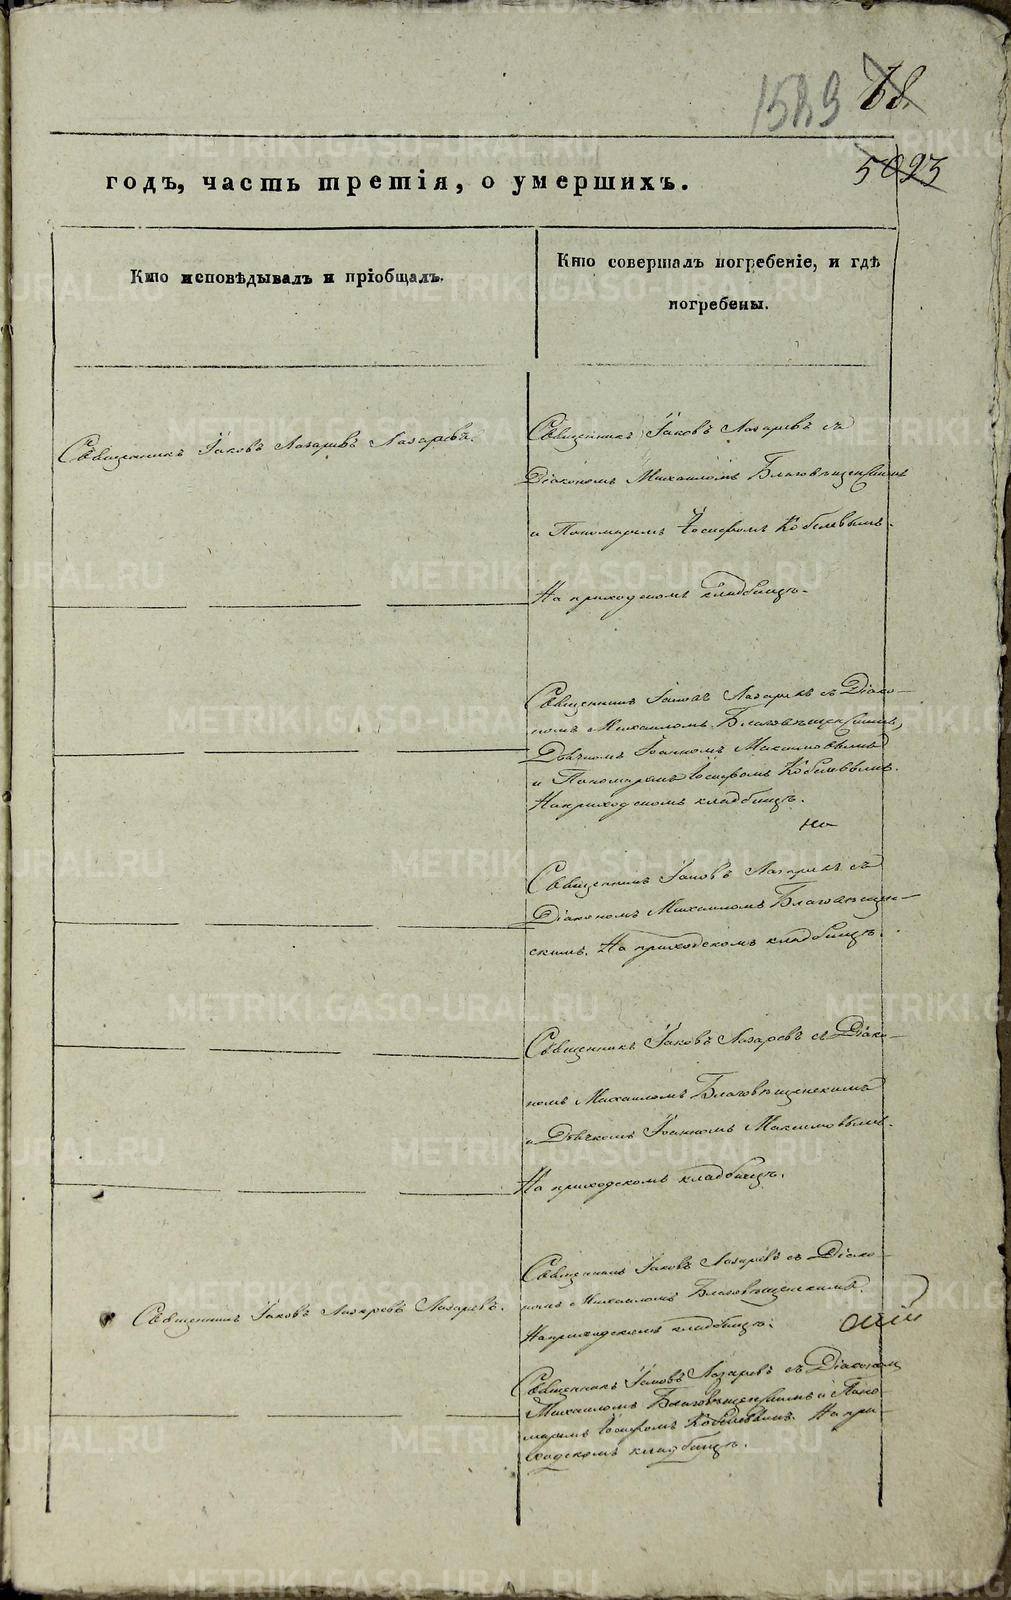 1589
68.
5093
годъ, часть третія, о умершихъ.
Кто исповѣдывалъ и пріобщалъ.
Кто совершалъ погребеніе, и гдѣ
погребены.
Священникъ Іаковъ Лазаревъ Лазаревъ.
Священникъ Іаковъ Лазаревъ съ
Діакономъ Михаиломъ Благовѣщенскимъ
и Пономаремъ Іосифомъ Кобелевымъ.
На приходскомъ кладбищѣ.
Священникъ Іаковъ Лазаревъ съ Діако-
номъ Михаиломъ Благовѣщенскимъ,
Дьячкомъ Іоанномъ Максимовымъ
и Пономаремъ Іосифомъ Кобелевымъ.
На приходскомъ кладбищѣ.
но
Священникъ Іаковъ Лазаревъ съ
Діакономъ Михаиломъ Благовѣщен-
скимъ. На приходскомъ кладбищѣ.
Священникъ Іаковъ Лазаревъ съ Діако-
номъ Михаиломъ Благовѣщенскимъ
и Дьячкомъ Іоанномъ Максимовымъ.
На приходскомъ кладбищѣ.
Священникъ Іаковъ Лазаревъ Лазаревъ.
Священникъ Іаковъ Лазаревъ съ Діако-
номъ Михаиломъ Благовѣщенскимъ.
На приходскомъ кладбищѣ.
Священникъ Іаковъ Лазаревъ съ Діакономъ
Михаиломъ Благовѣщенскимъ и Поно-
маремъ Іосифомъ Кобелевымъ. На при-
ходскомъ кладбищѣ.
METRIKI.GASO-URAL.RU